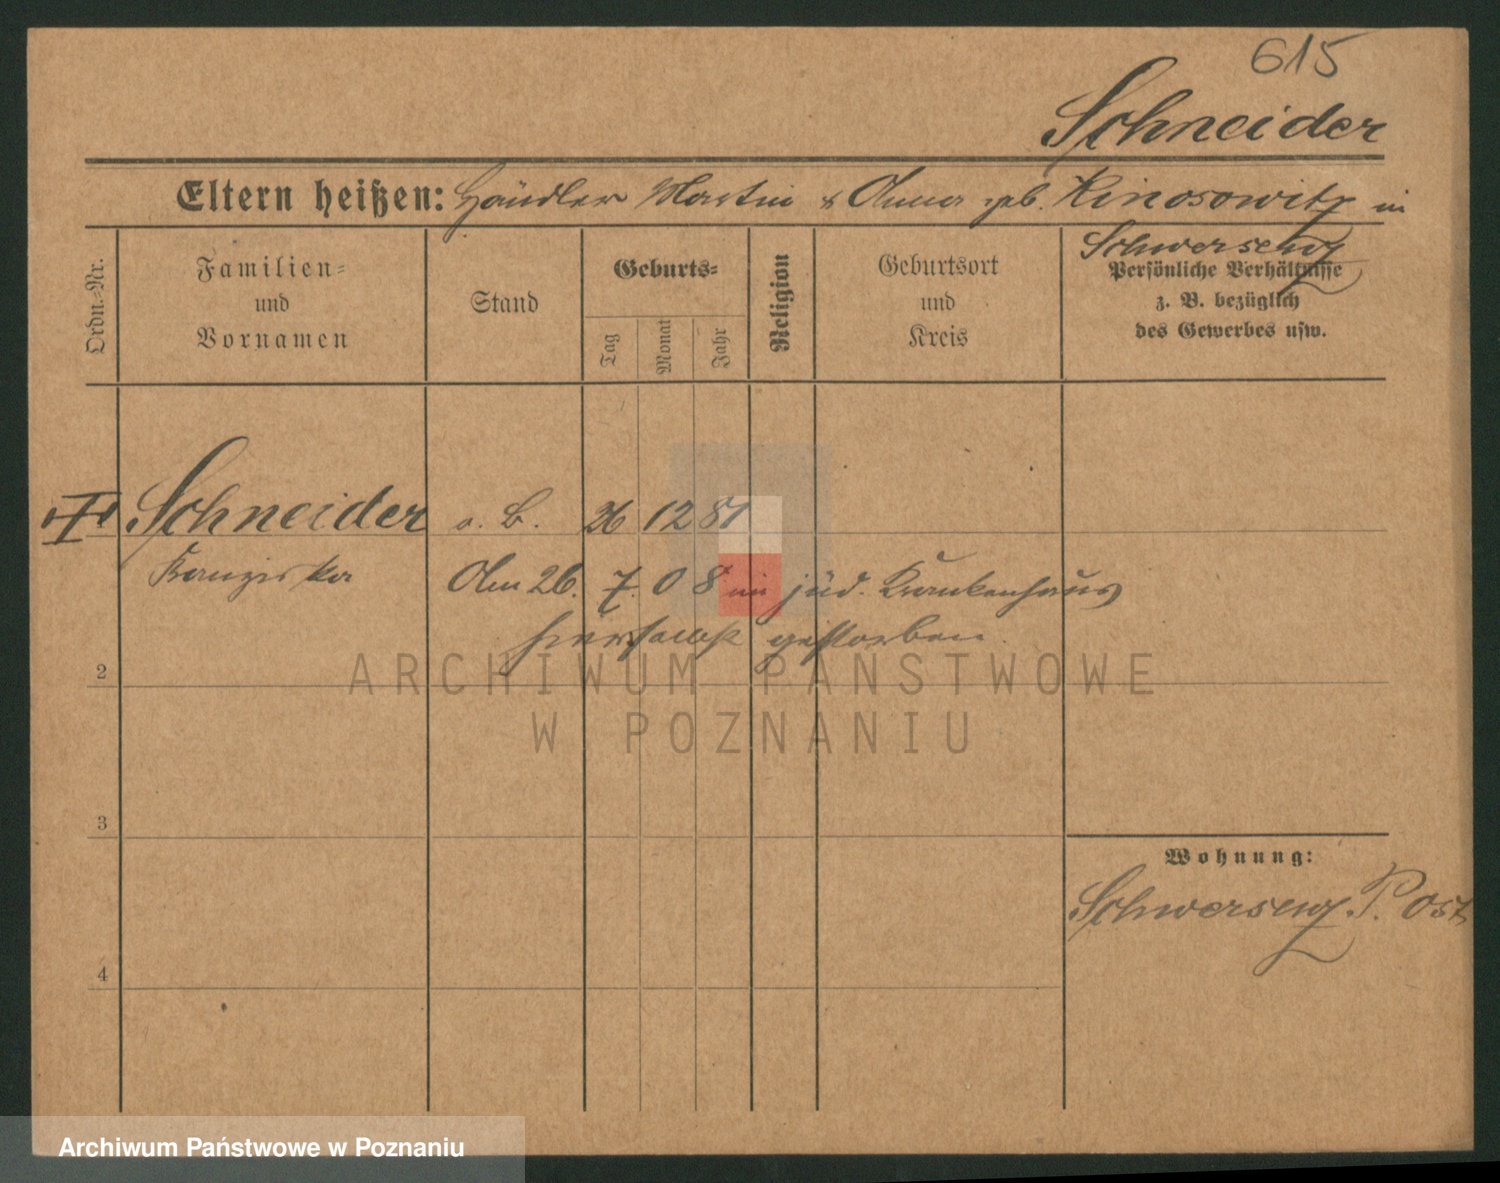 615
Schneider
Eltern heißen: Händler Martin & Anna geb. Kinosowitz in
Schwersenz
Ordn.-Nr.
Familien-
und
Vornamen
Stand
Geburts-
Tag
Monat
Jahr
Religion
Geburtsort
und
Kreis
Persönliche Verhältnisse
z. B. bezüglich
des Gewerbes usw.
Schneider o. B. 26 12 81
Franziska Am 26. 7. 08 im jüd. Krankenhaus
hierselbst gestorben.
2
ARCHIWUM PAŃSTWOWE
W POZNANIU
3
Wohnung:
Schwersenz. P. Ost
4
Archiwum Państwowe w Poznaniu